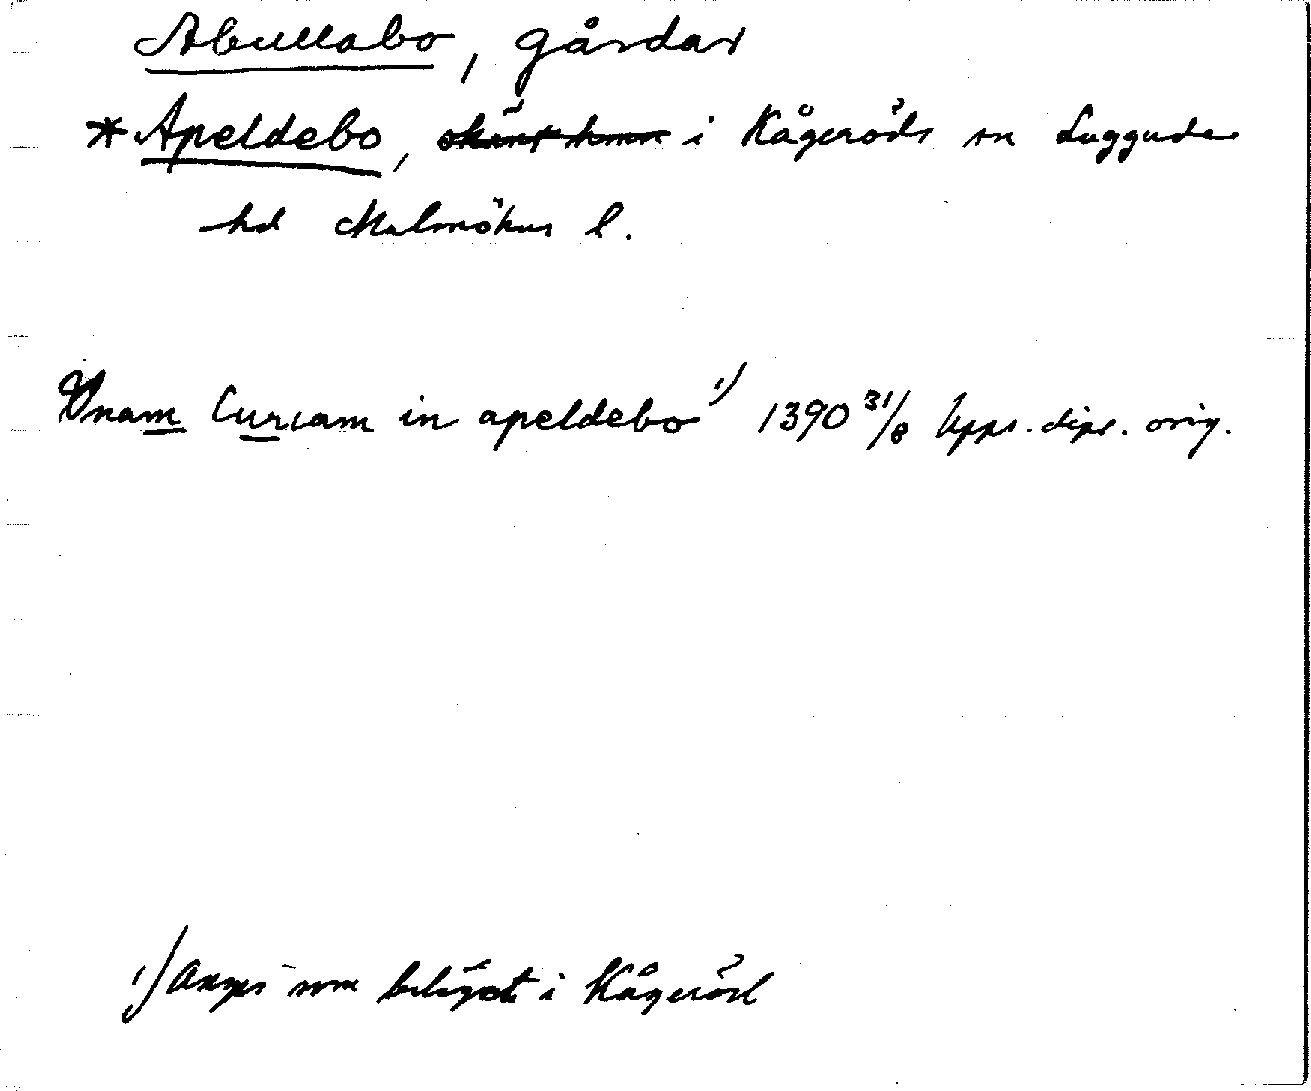 Abullabo, gårdar
*Apeldebo, i Kågeröds sn Luggude
hd Malmöhus l.
Vnam Curiam in apeldebo 1) 1390 31/8 Upps. dipl. orig.
1) Anges som beläget i Kågeröd